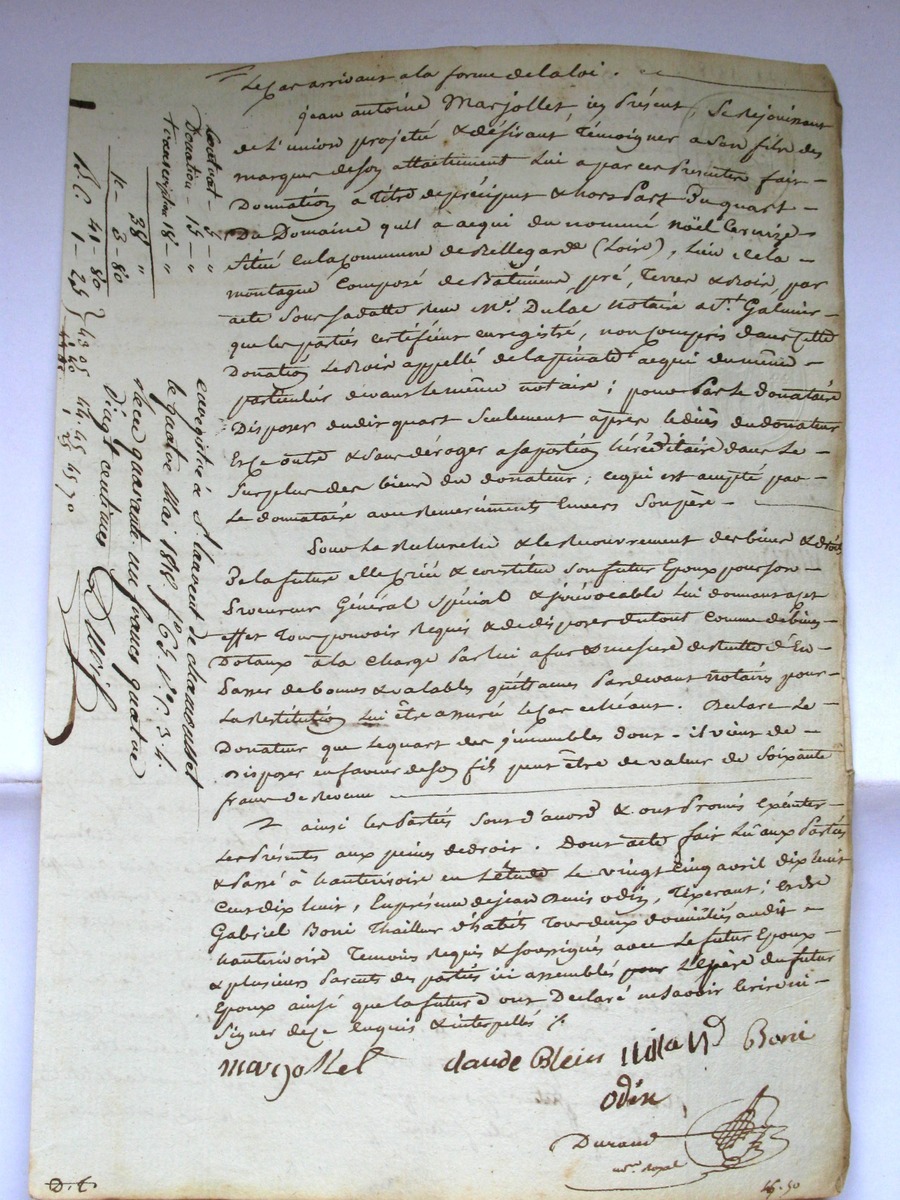 Le cas arrivant a la forme de la loi .
Jean antoine Marjollet icy Présent, Se rejouissant
de L'union projetté & désirant Témoigner a Son fils des
marques de Son attachement Lui a par ces Présentes fait
Donnation a Titre de préciput & hors Part Du quart
Du Domaine qu'il a acqui du nommé Noël
Situé en la Commune de Bellegarde (Loire), Lieu de la
montagne Composé de Bâtiment, pré, Terres & Bois, par
acte Sous sa datte Reçu Me. Dulac Notaire a St. Galmier
que les parties certifient enregistré, non Compris dans cette
Donation Le Bois appellé de la pinatte acqui du même
particulier devant le même notaire ; pour Par Le donataire
Disposer dudit quart Seulement après le décès du donateur
En ce outre & Sans déroger a sa portion héréditaire dans Le
Surplus des biens du donateur ; ce qui est accepté par
Le donnataire avec Remerciments Envers Son père
Pour La Recherche & le Recouvrement des biens & droits
De la future elle créé & constitue Son futur Epoux pour Son
Procureur Général Spécial & irrévocable Lui donnant a cet
effet Tout pouvoir Requis & de disposer du tout Comme de biens
Dotaux à la Charge Par lui a fur & mesure de Recette d'En
Passer de bonnes & valables quittances Pardevant notaires pour
La Restitution Lui être assuré le Cas échéant . Declare Le
Donateur que Le quart des immeubles dont il vient de
Disposer en faveur de Son fils peut être de valeur de Soixante
francs de Revenu
ainsi les Parties Sont d'accord & ont Promis Exécuter
Les Présentes aux peines de droit . Dont acte fait Lû aux Parties
& Passé à hauterivoire en L'étude Le vingt Cinq avril dix huit
Cent dix huit, En présence de Jean Denis Odin, Tixerant, & de
Gabriel Boni Thailleur d'habits Tous deux domiciliés audit
hauterivoire Temoins Requis & Soussignés avec Le futur Epoux
& plusieurs Parents des parties ici assemblés pour Le père du futur
Epoux ainsi que la future ont Déclaré ne Savoir Ecrire ni
Signer de ce Enquis & interpellés
marjollet Claude Boni
odin
Durand
not. Royal
Contrat - 5 - "
Donation - 15 - "
Transcription 18 - "
38 "
3 - 80
41 - 80
1 - 25
43 05
44.45
45 70
enregistré à St laurent de chamousset
le quatre Mai 1818
reçu quarante un francs quatre
vingt centimes
D. C.
46.50